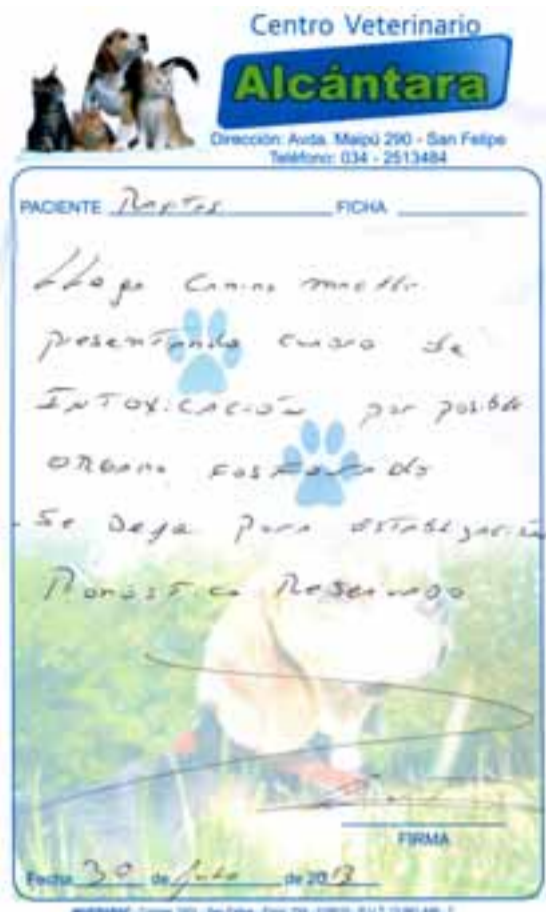 Centro Veterinario
Alcántara
Dirección: Avda. Maipú 290 - San Felipe
Teléfono: 034 - 2513484
PACIENTE FICHA
Llega Canino macho
presentando cuadro de
INTOXICACIÓN por posible
ORGANO FOSFORADO
Se Deja para estabilización
Pronóstico Reservado
FIRMA
Fecha 30 de Julio de 2013